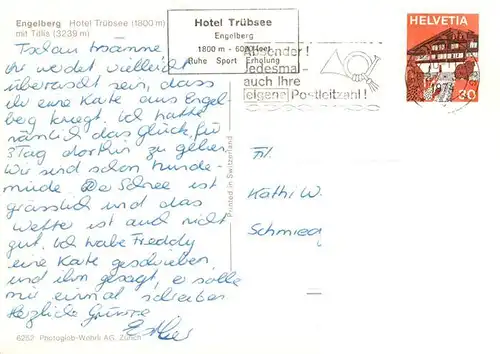 Engelberg Hotel Trübsee (1800 m)
mit Titlis (3239 m)
Hotel Trübsee
Engelberg
1800 m - 6000 feet
Ruhe Sport Erholung
Absender!
Jedesmal
auch Ihre
eigene Postleitzahl!
HELVETIA
30
Tschau zusamme
Ihr werdet vielleicht
überrascht sein, dass
ihr eine Karte aus Engel-
berg kriegt. Ich hatte
nämlich das Glück, für
3 Tag dorthin zu gehen.
Wir sind schon hunde-
müde. Der Schnee ist
grässlich und das
Wetter ist auch nicht
gut. Ich habe Freddy
eine Karte geschrieben
und ihm gesagt, er solle
mir einmal schreiben
Herzliche Grüsse
Esther
Frl.
Kathi W.
Schmied
Printed in Switzerland
6252 Photoglob-Wehrli AG, Zürich